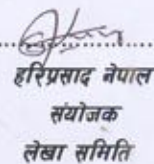 हरिप्रसाद नेपाल
संयोजक
लेखा समिति